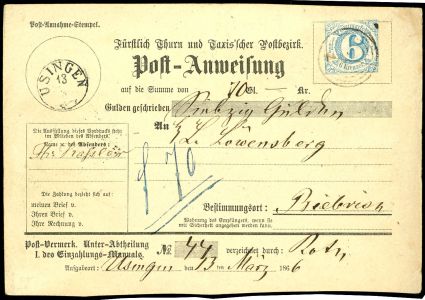 Post-Annahme-Stempel.
USINGEN
13
3
Fürstlich Thurn und Taxis'scher Postbezirk.
6
6 Kreuzer
Post-Anweisung
auf die Summe von 70 Gl. — Kr.
Gulden geschrieben Siebzig Gulden
An
L. Löwensberg
Die Ausfüllung dieses Vordrucks steht
im Belieben des Absenders.
Name des Absenders:
f 70
Die Zahlung bezieht sich auf:
meinen Brief v.
Ihren Brief v.
Ihre Rechnung v.
Bestimmungsort: Biebrich
Wohnung des Empfängers, wenn sie
mit Sicherheit angegeben werden kann.
Post-Vermerk. Unter-Abtheilung
I. des Einzahlungs-Manuals.
№ 44 verzeichnet durch: Roth
Aufgabeort: Usingen den 13 März 1866